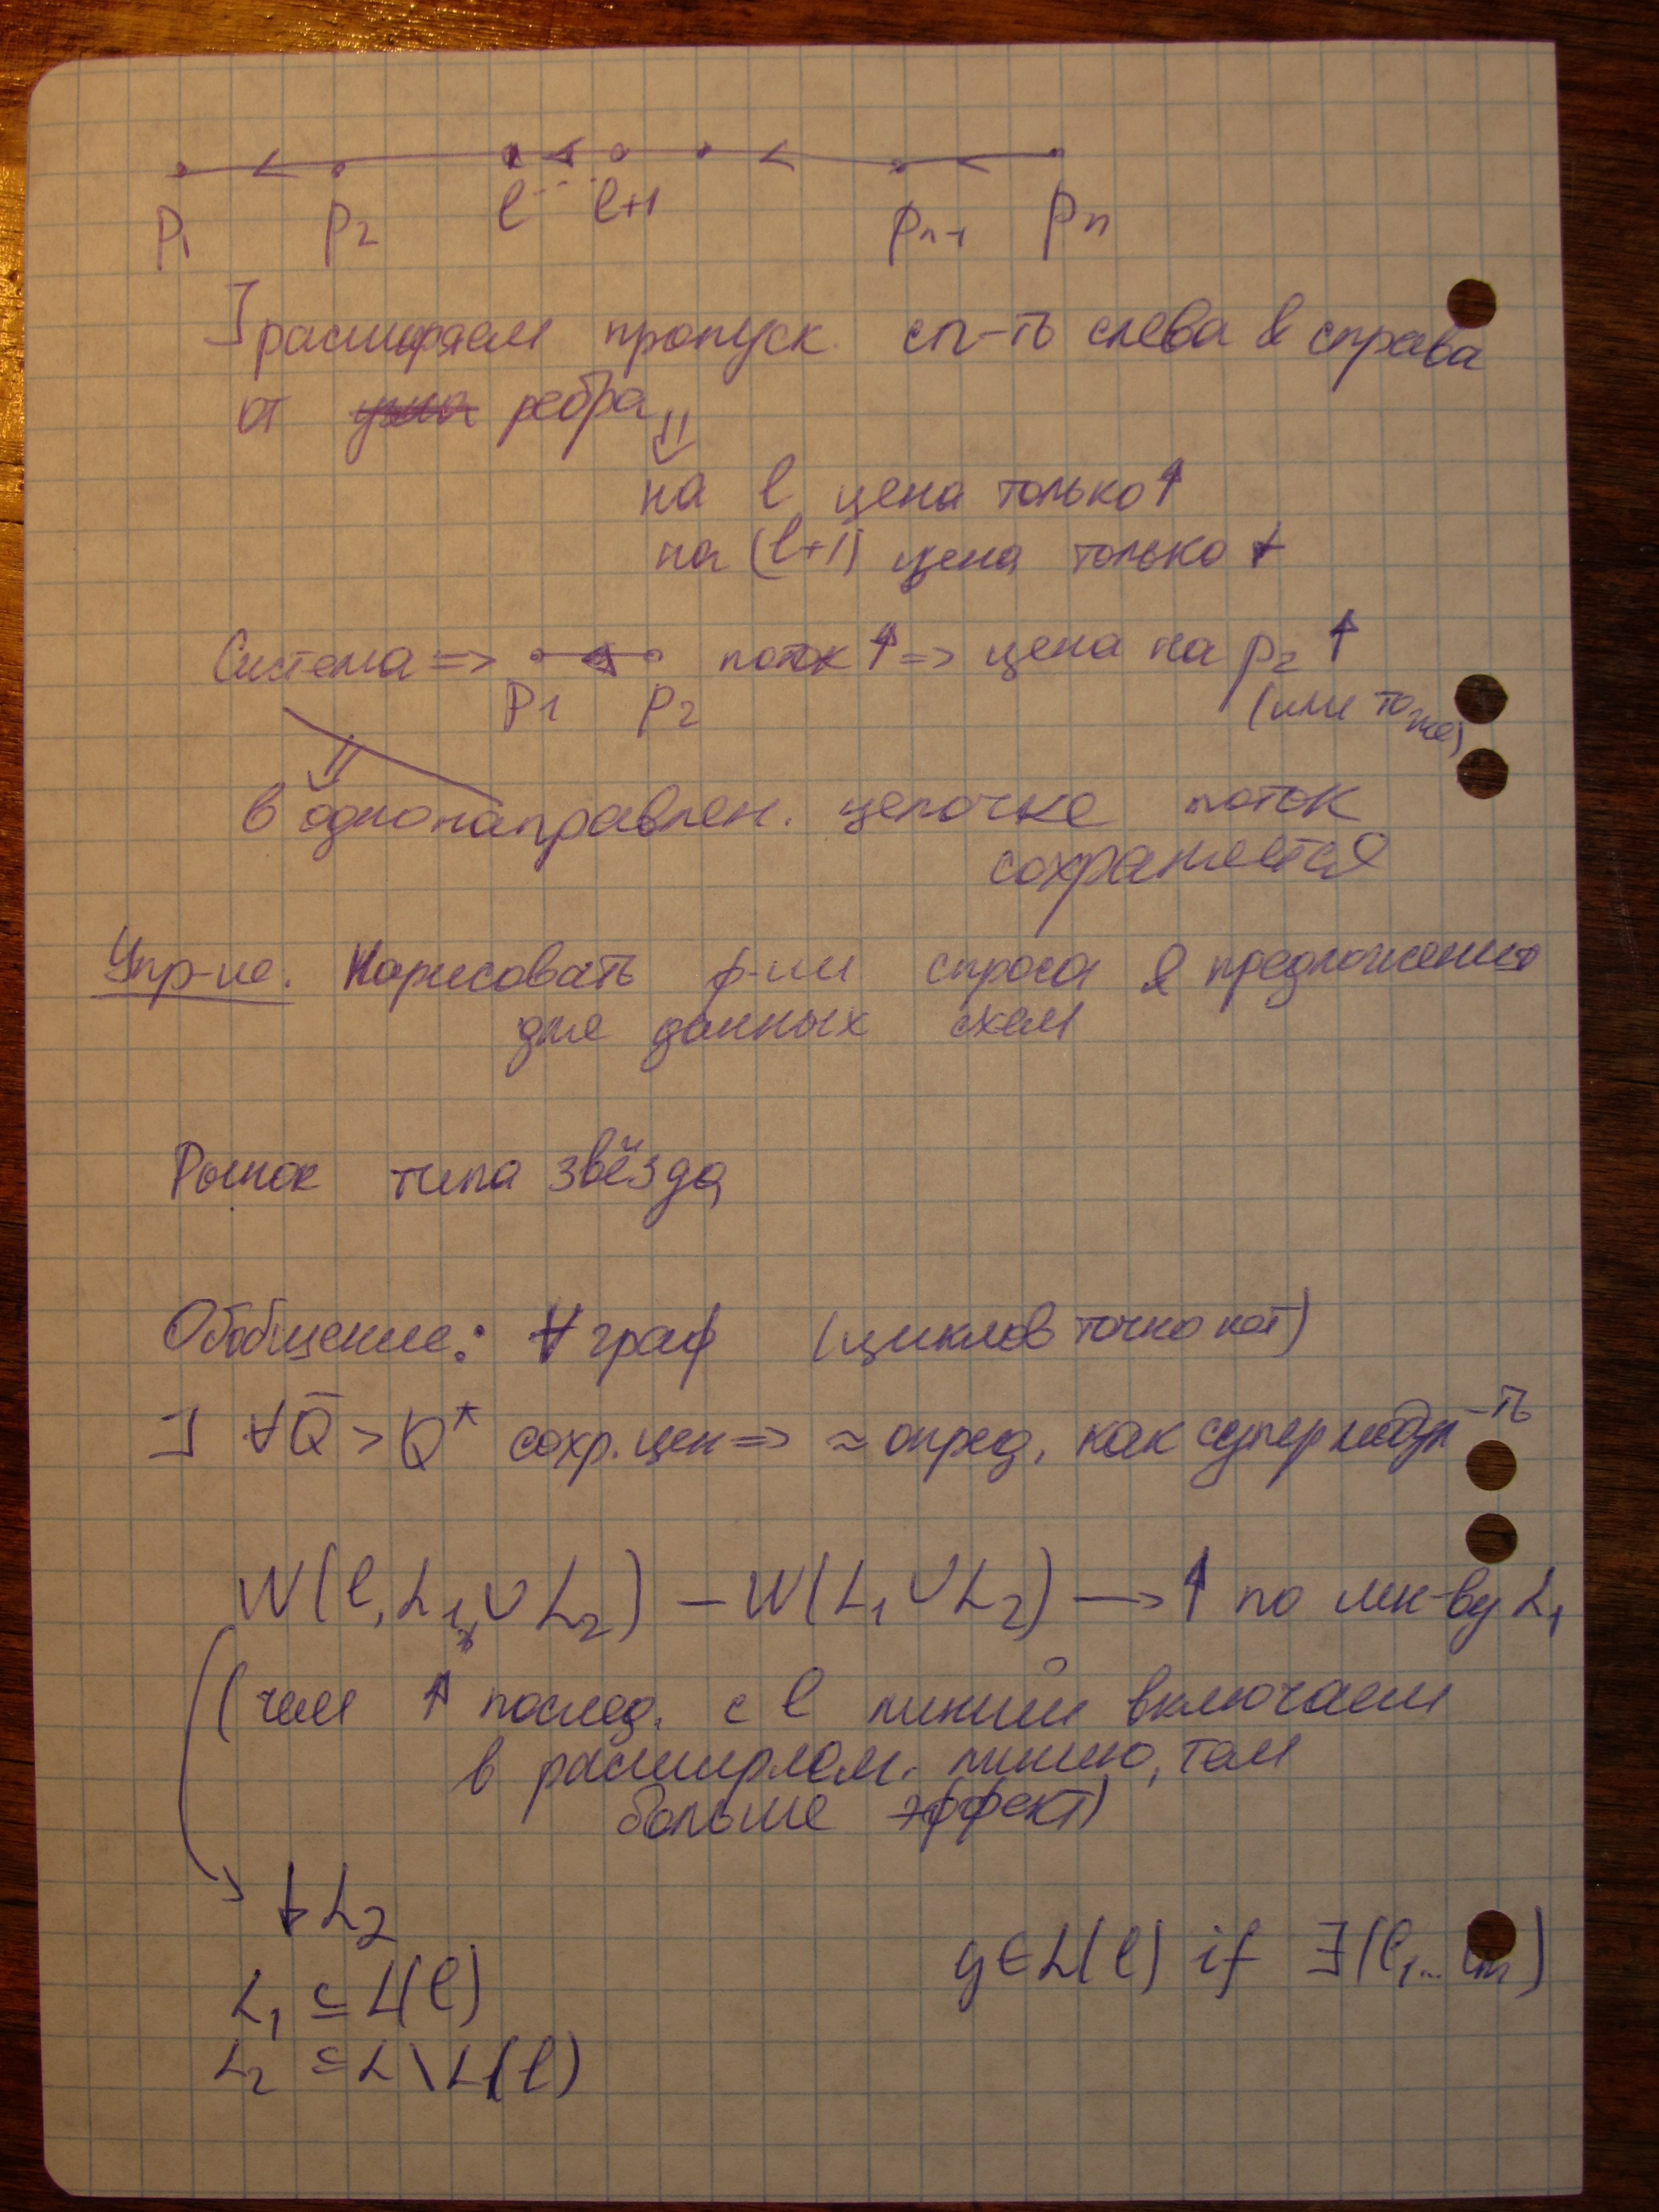 p₁ p₂ l ... l+1 pₙ₋₁ pₙ
∃ расширяем пропуск. сп-ть слева & справа
от ребра
⇓
на l цена только ↑
на (l+1) цена только ↓
Система => поток ↑ => цена на p₂ ↑
p₁ p₂ (или тоже)
⇓
в однонаправлен. цепочке поток
сохраняется
Упр-ие. Нарисовать ф-ии спроса & предложения
для данных схем
Рынок типа звёзда
Обобщение: ∀ граф (циклов точно нет)
∃ ∀ Q̄ > Q* сохр. цен => ≈ опред. как супермодул-ть
W(l, L₁ ∪ L₂) – W(L₁ ∪ L₂) → ↑ по мн-ву L₁
(чем ↑ послед. с l линий включаем
в расширяем. линию, тем
больше эффект)
↓ L₂
L₁ ⊆ L(l)
g ∈ L(l) if ∃ (l₁... lₘ)
L₂ ⊆ L \ L(l)